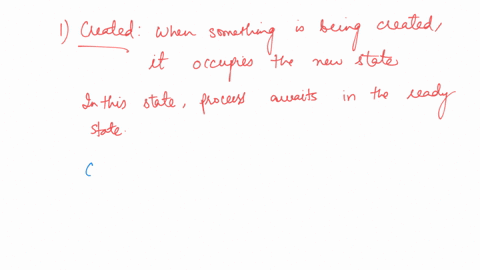 1) Created: When something is being created,
it occupies the new state
In this state, process awaits in the ready
state.
C